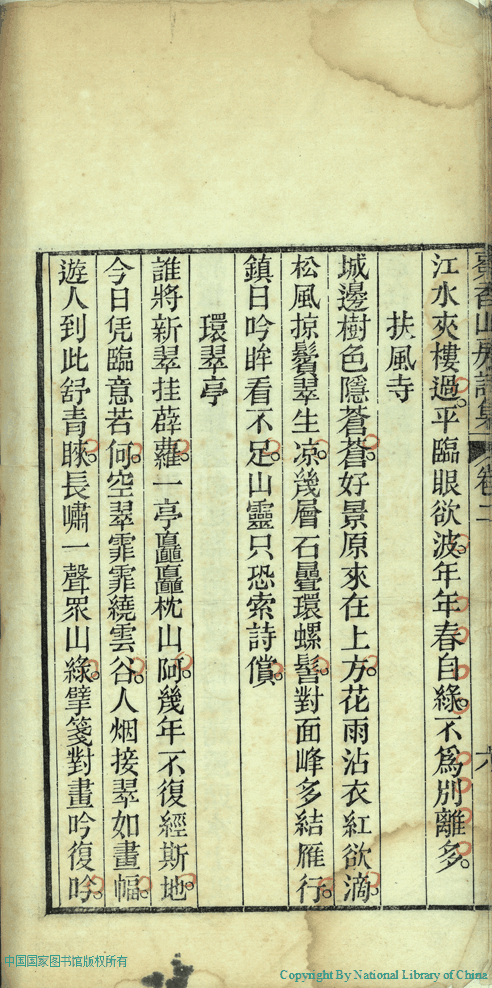 江水夾樓過平臨眼欲波年年春自綠不爲別離多
扶風寺
城邊樹色隱蒼蒼好景原來在上方花雨沾衣紅欲滴
松風掠鬢翠生凉幾層石疊環螺髻對面峰多結雁行
鎮日吟眸看不足山靈只恐索詩償
環翠亭
誰將新翠挂薜蘿一亭矗矗枕山阿幾年不復經斯地
今日凭臨意若何空翠霏霏繞雲谷人烟接翠如畫幅
遊人到此舒青睞長嘯一聲眾山綠擘箋對畫吟復吟
山房詩集 卷二
六
中国国家图书馆版权所有
Copyright By National Library of China